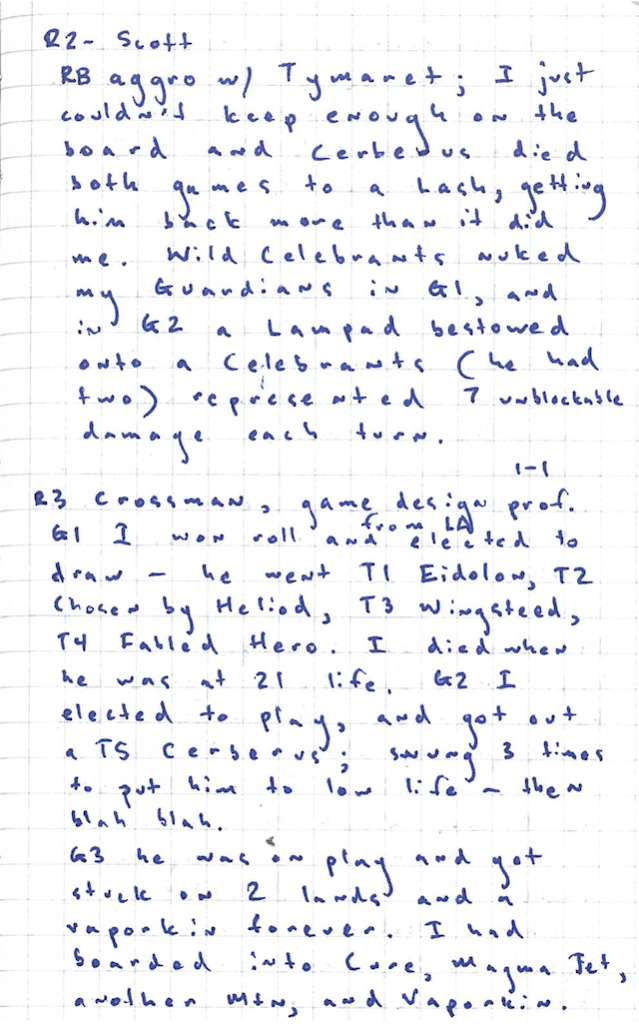 R2- Scott
RB aggro w/ Tymaret; I just
couldn't keep enough on the
board and Cerberus died
both games to a Lash, getting
him back more than it did
me. Wild Celebrants nuked
my Guardians in G1, and
in G2 a Lampad bestowed
onto a Celebrants (he had
two) represented 7 unblockable
damage each turn.
1-1
R3 Crossman, game design prof.
from LA
G1 I won roll and elected to
draw - he went T1 Eidolon, T2
Chosen by Heliod, T3 Wingsteed,
T4 Fabled Hero. I died when
he was at 21 life. G2 I
elected to play, and got out
a T5 Cerberus; swung 3 times
to put him to low life - then
blah blah.
G3 he was on play and got
stuck on 2 lands and a
vaporkin forever. I had
boarded into Cure, Magma Jet,
another Mtn, and Vaporkin.